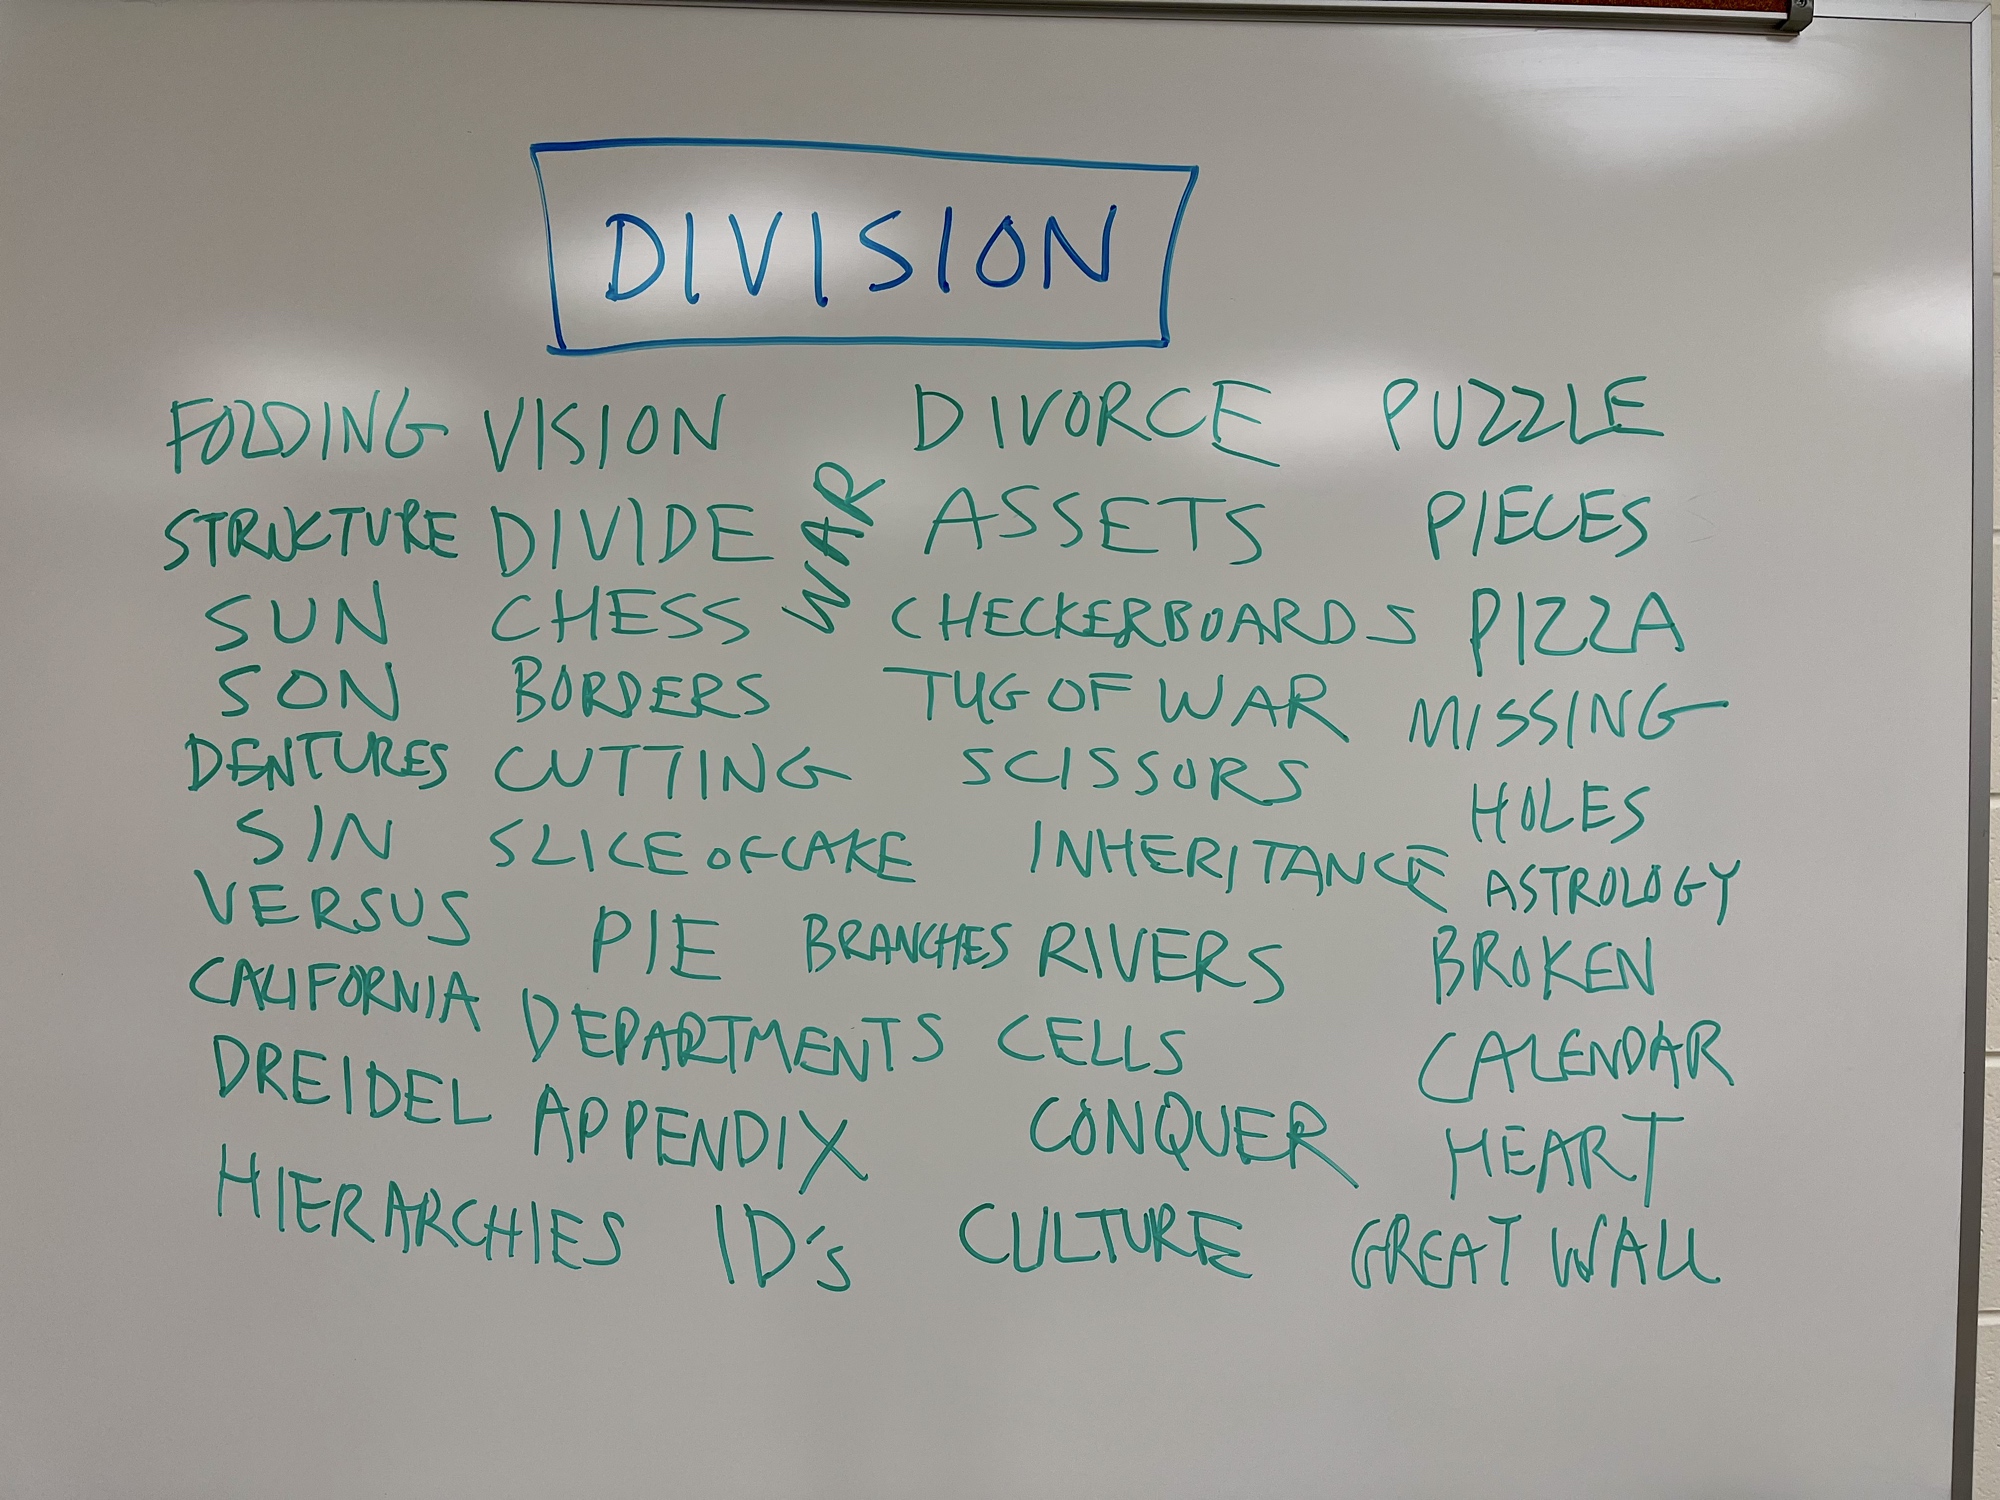 DIVISION
FOLDING VISION DIVORCE PUZZLE
STRUCTURE DIVIDE WAR ASSETS PIECES
SUN CHESS CHECKERBOARDS PIZZA
SON BORDERS TUG OF WAR MISSING
DENTURES CUTTING SCISSORS HOLES
SIN SLICE OF CAKE INHERITANCE ASTROLOGY
VERSUS PIE BRANCHES RIVERS BROKEN
CALIFORNIA DEPARTMENTS CELLS CALENDAR
DREIDEL APPENDIX CONQUER HEART
HIERARCHIES ID's CULTURE GREAT WALL